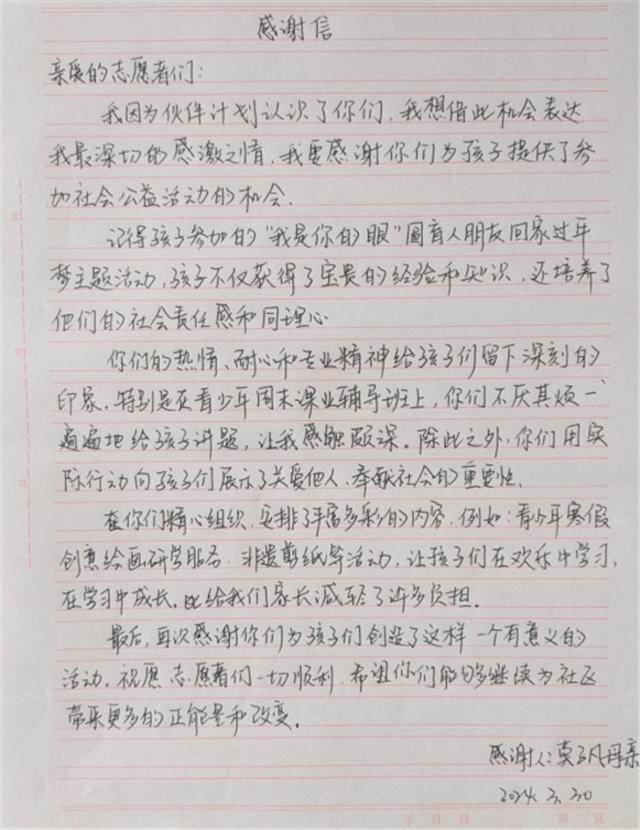 感谢信
亲爱的志愿者们：
我因为伙伴计划认识了你们，我想借此机会表达
我最深切的感激之情，我要感谢你们为孩子提供了参
加社会公益活动的机会．
记得孩子参加的“我是你的眼”圆盲人朋友回家过年
梦主题活动，孩子不仅获得了宝贵的经验和知识，还培养了
他们的社会责任感和同理心
你们的热情、耐心和专业精神给孩子们留下深刻的
印象，特别是在青少年周末课业辅导班上，你们不厌其烦一
遍遍地给孩子讲题，让我感触颇深．除此之外，你们用实
际行动向孩子们展示了关爱他人、奉献社会的重要性．
在你们精心组织．安排了丰富多彩的内容，例如：青少年寒假
创意绘画研学服务．非遗剪纸等活动，让孩子们在欢乐中学习，
在学习中成长．也给我们家长减轻了许多负担．
最后，再次感谢你们为孩子们创造了这样一个有意义的
活动．祝愿志愿者们一切顺利．希望你们能够继续为社区
带来更多的正能量和改变．
感谢人：莫子凡母亲
2024.3.30
年 月 日 第 区